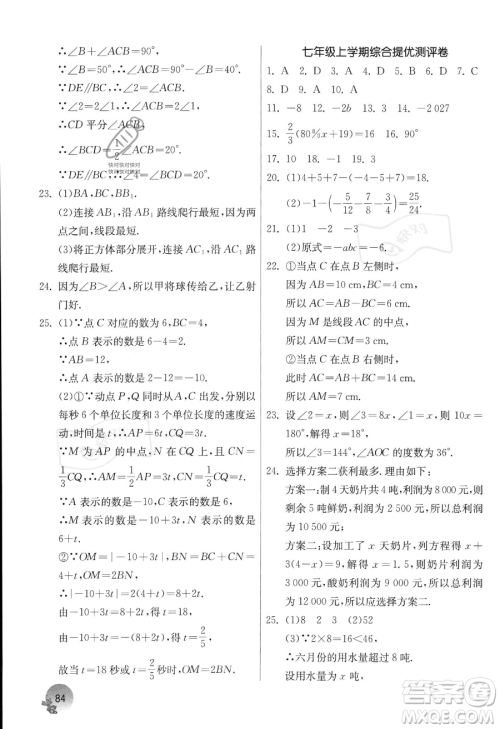 ∴∠B+∠ACB=90°.
∵∠B=50°,∴∠ACB=40°.
∵DE//BC,∴∠2=∠ACB=40°.
(2)∵DE//BC,∴∠2=∠ACB.
∵∠2=2∠1,∴∠ACB=2∠1,
∴CD 平分∠ACB,
∴∠BCD=1/2∠ACB=∠1.
∵DE//BC,∴∠B+∠BDE=180°,
∴∠BCD+∠4+∠B=180°.
23. (1)BA,BC,BB₁.
(2)连接 AB₁,沿 AB₁ 爬行最短,因为两
点之间,线段最短.
(3)将正方体部分展开,连接 AC₁,沿
AC₁ 爬行最短.
24. 因为∠B>∠A,所以甲将球传给乙,让乙射
门好.
25. (1)∵点 C 对应的数为 6,BC=4,
∴点 B 表示的数是 6-4=2.
∵AB=12,
∴点 A 表示的数是 2-12=-10.
(2)①∵动点 P,Q 分别同时从 A,C 出发,分别以
每秒 6 个单位长度和 3 个单位长度的速度运
动,时间是 t,∴AP=6t,CQ=3t.
∵M 为 AP 的中点,N 在 CQ 上,且 CN=
1/3CQ,∴AM=1/2AP=3t,CN=1/3CQ=t.
∵A 表示的数是-10,C 表示的数是 6,
∴M 表示的数是-10+3t,N 表示的数是
6+t.
②∵OM=|-10+3t|,BN=BC+CN=
4+t,OM=2BN,
∴|-10+3t|=2(4+t)=8+2t,
由-10+3t=8+2t,得 t=18,
由-10+3t=-(8+2t),得 t=2/5,
故当 t=18 秒或 t=2/5秒时 OM=2BN.
84
七年级上学期综合提优测评卷
1. A 2. D 3. A 4. D 5. D 6. D 7. C
8. D 9. D 10. A
11. -8 12. -2b 13. 4 14. -2 027
15. 2/3(80%x+19) 16. 90°
17. 10 18. -1 19. 3
20. (1)4+5+7-4+1+5=18.
(2)-1-(9/24-4/24-54/24)=25/24.
21. (1)1
(2)原式=-abc=-6.
22. ①当点 C 在点 B 左侧时,
因为 AB=10 cm,BC=4 cm,
所以 AC=6 cm.
因为 M 是线段 AC 的中点,
所以 AM=3 cm.
②当点 C 在点 B 右侧时,
此时 AC=14 cm,
所以 AM=7 cm.
所以 x=18°,∠AOC 的度数为 36°.
24. 选择方案二获利最多.
方案一:制 4 天奶片共 4 吨,利润为 8 000 元,
剩余 5 吨鲜奶,利润为 2 500 元,总利润为
10 500 元;
方案二:设加工了 x 天奶片,列方程为 x+
3(4-x)=9,解得 x=1.5,则奶片利润为
3 000 元,酸奶利润为 9 000 元,总利润为
12 000 元.
所以应选方案二.
25. (1)8 (2)32
(3)∵2×8=16<46,
∴六月份的用水量超过 8 吨.
设用水量为 x 吨,